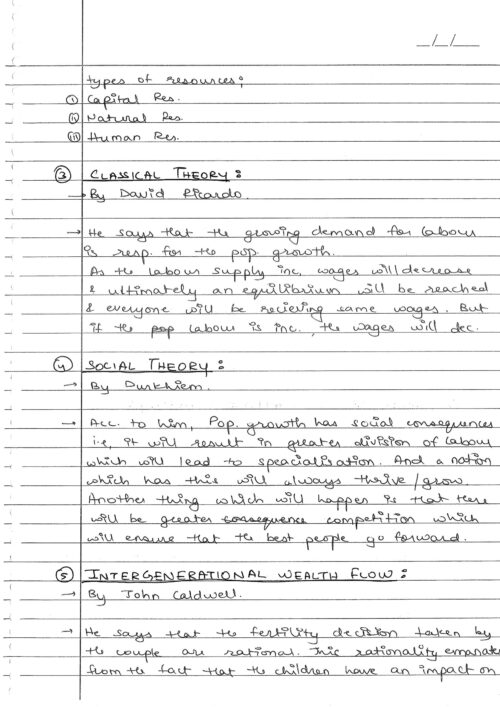 _/_/_
types of resources;
(i) Capital Res.
(ii) Natural Res.
(iii) Human Res.
(3) CLASSICAL THEORY:
→ By David Ricardo.
→ He says that the growing demand for labour
is resp. for the pop. growth.
As the labour supply inc, wages will decrease
& ultimately an equilibrium will be reached
& everyone will be recieving same wages. But
if the pop labour is inc., the wages will dec.
(4) SOCIAL THEORY:
→ By Durkhiem.
→ Acc. to him, Pop. growth has social consequences
i.e, it will result in greater division of labour
which will lead to speacialisation. And a nation
which has this will always thrive/grow.
Another thing which will happen is that there
will be greater consequence competition which
will ensure that the best people go forward.
(5) INTERGENERATIONAL WEALTH FLOW:
→ By John Caldwell.
→ He says that the fertility decision taken by
the couple are rational. This rationality emanate
from the fact that the children have an impact on